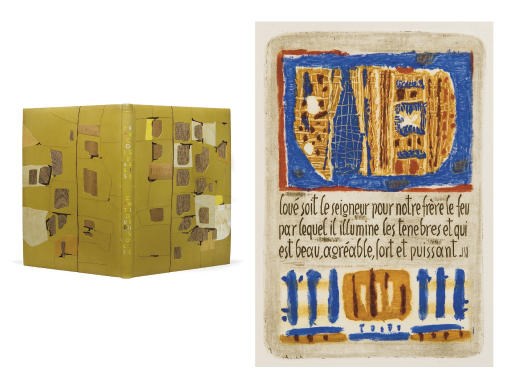 loué soit le seigneur pour notre frère le feu
par lequel il illumine les tenebres et qui
est beau, agréable, fort et puissant.